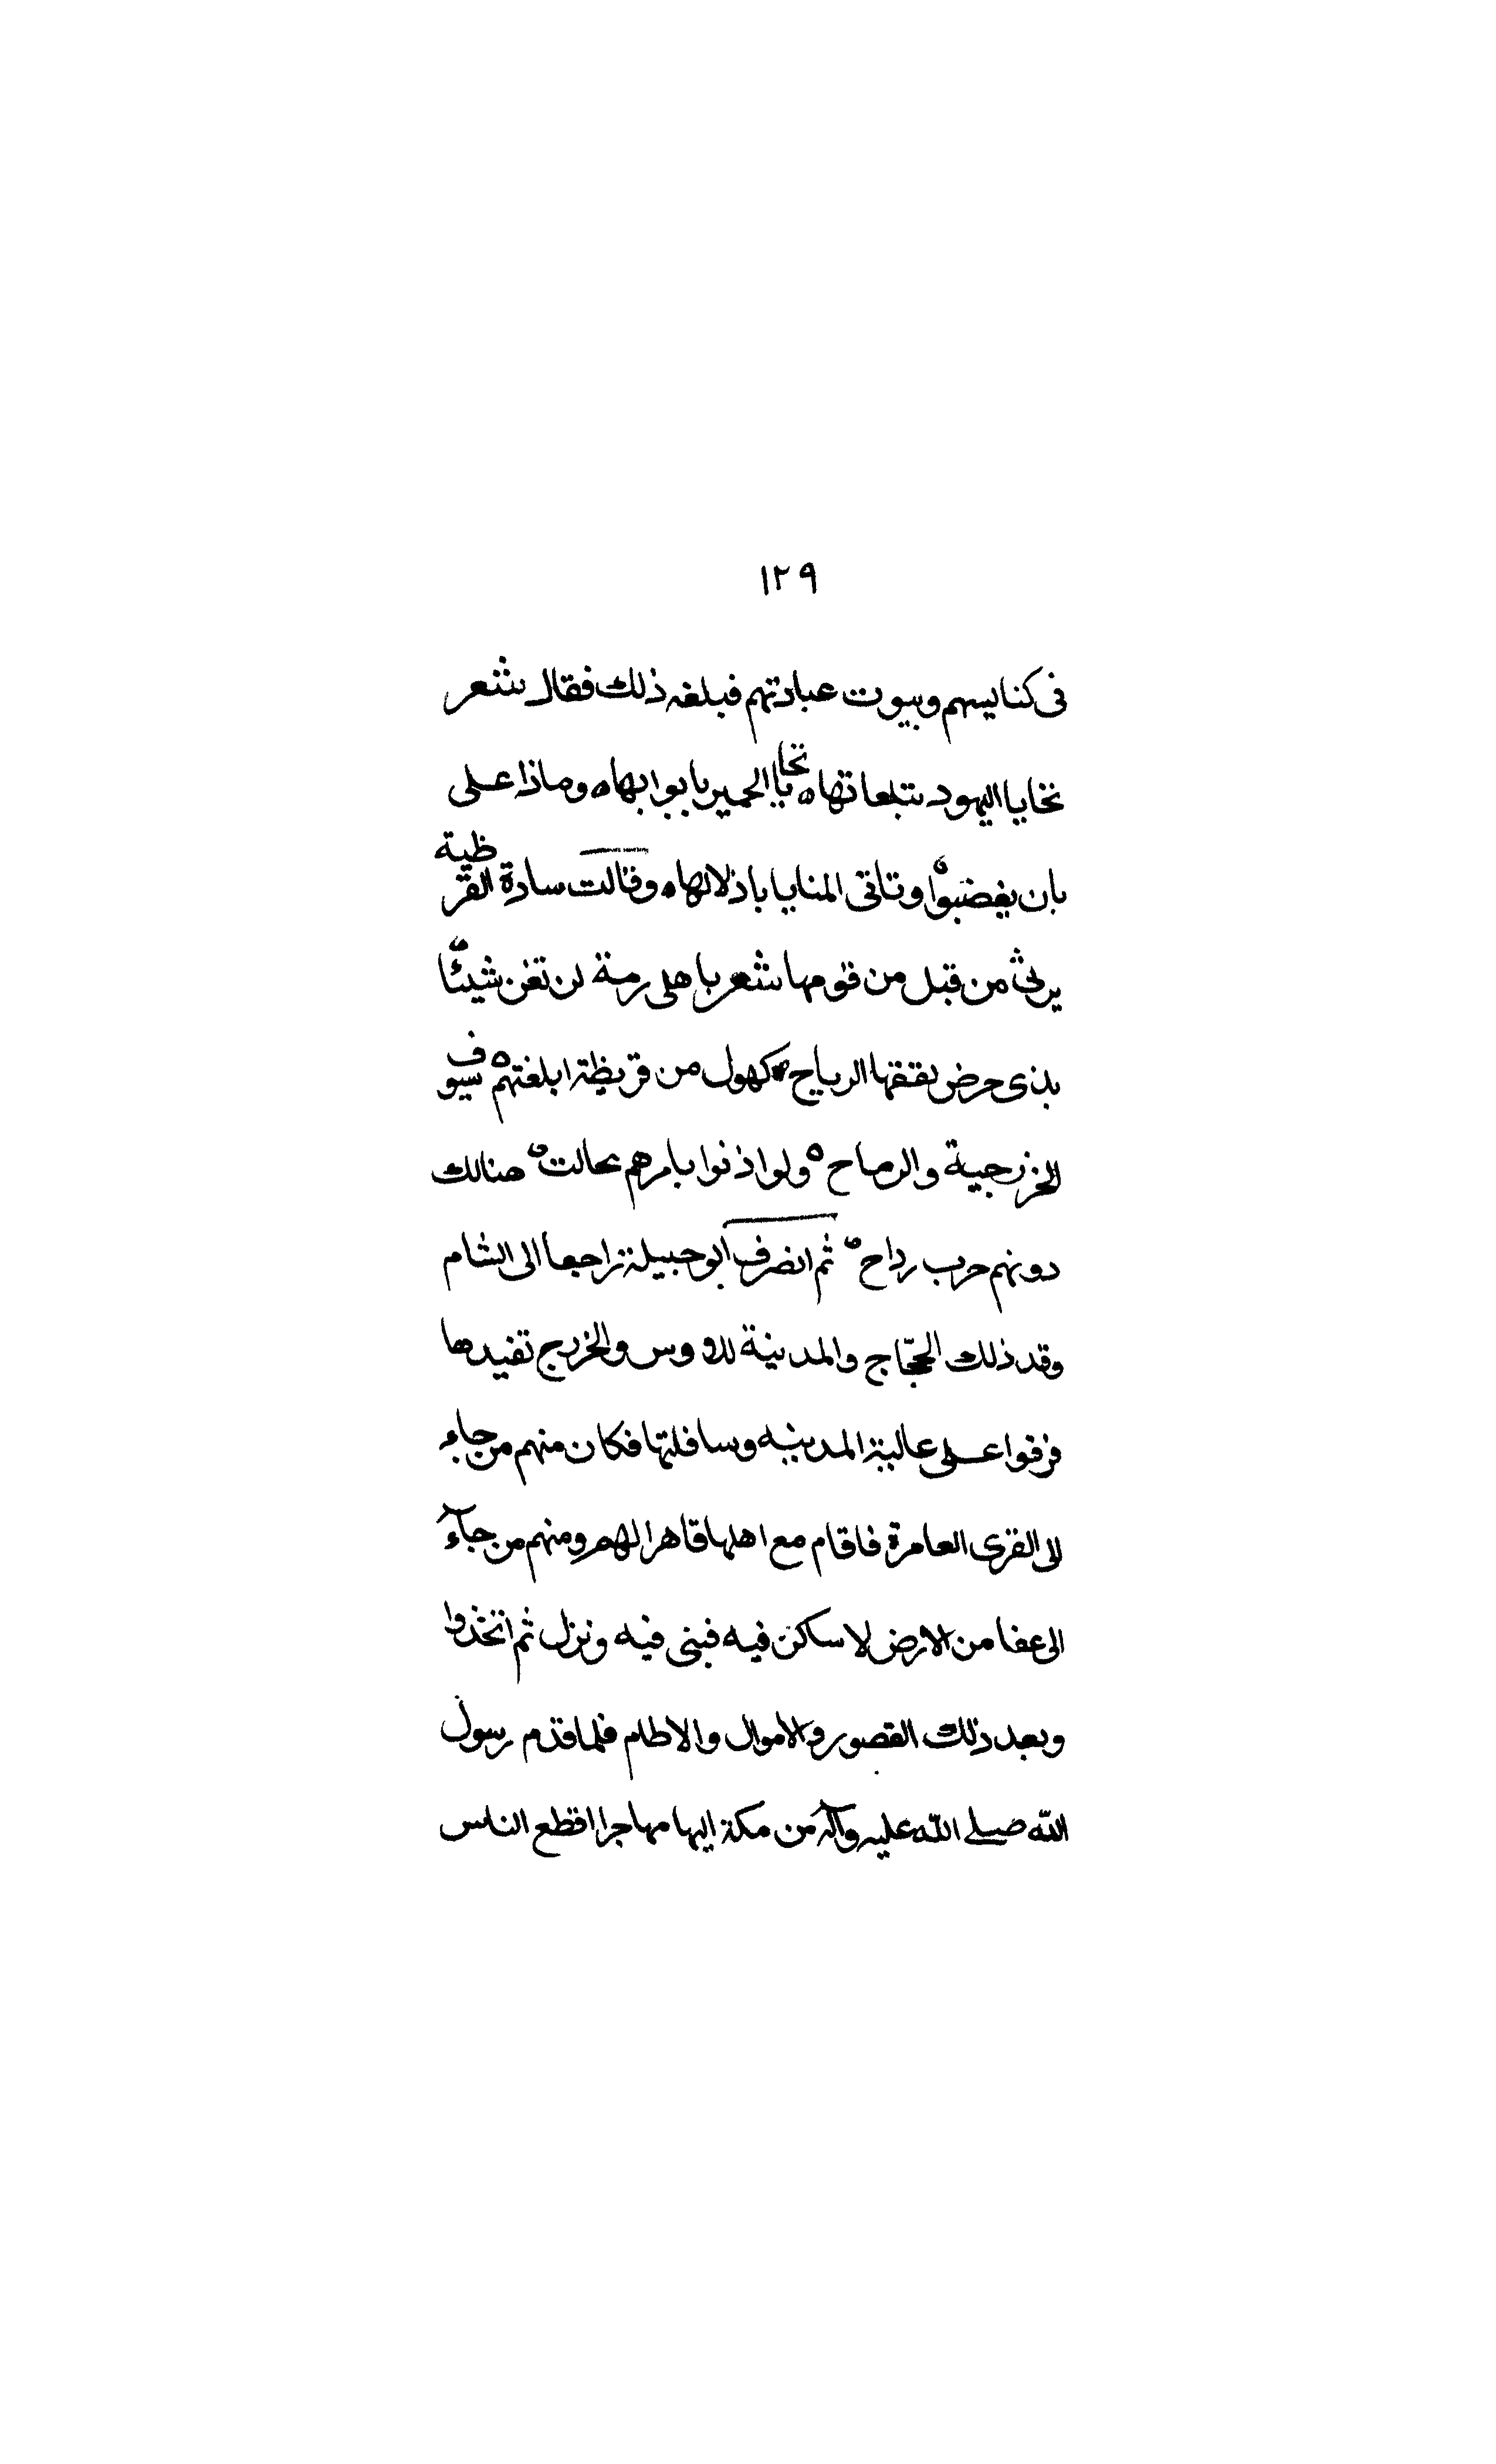 ١٢٩
فى كنايسهم وبيوت عبادتهم فبلغه ذلك فقال شعر
تحايا اليهود بتلعانها ه تحايا الحمير بابوابها ه وماذا على
بان يغضبوا ه وتاتى المنايا باذلالها ه وقالت سادة القرظية
يرثى من قبل من قومها شعر باهلى رمة لن تغن شيئًا ه
بذى حرض يقفقها الرياح ه كهول من قريظة ابلغتهم ه سيوف
الخزرجية والرماح ه ولو اذنوا بامرهم بحالت ه هنالك
دونهم حرب رداح ه ثم انصرف ابو حبيلة راجعا الى الشام
وقد ذلك الحجّاج والمدينة للاوس والخزرج تفيدها
فرقوا على عالية المدينه وسافلتها فكان منهم من جاء
الى القرى العامرة فاقام مع اهلها قاهرا لهم ومنهم من جآء
الى عفا من الارض لا ساكن فيه فبنى فيه ونزل ثم اتخذوا
وبعد ذلك القصور والاموال والاطام فلما قدم رسول
الله صلى الله عليه وآله من مكة اليها مهاجرا اقطع الناس